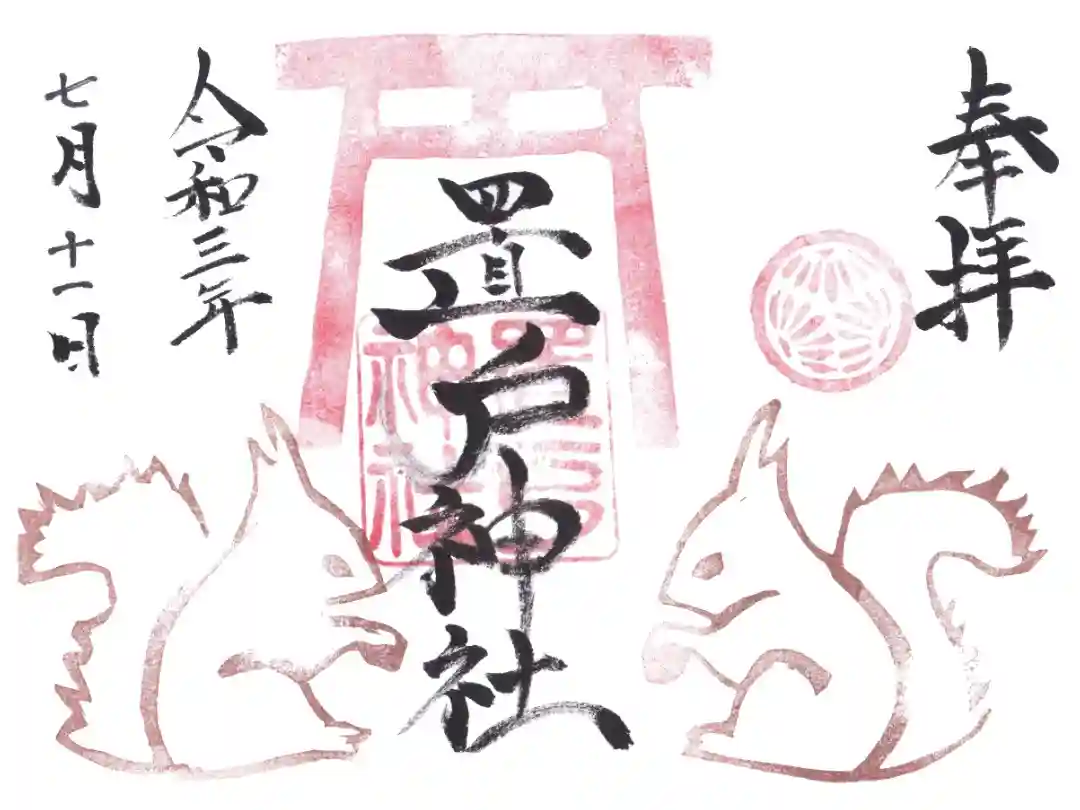 奉拝
置戸神社
置戸
神社
令和三年
七月十一日